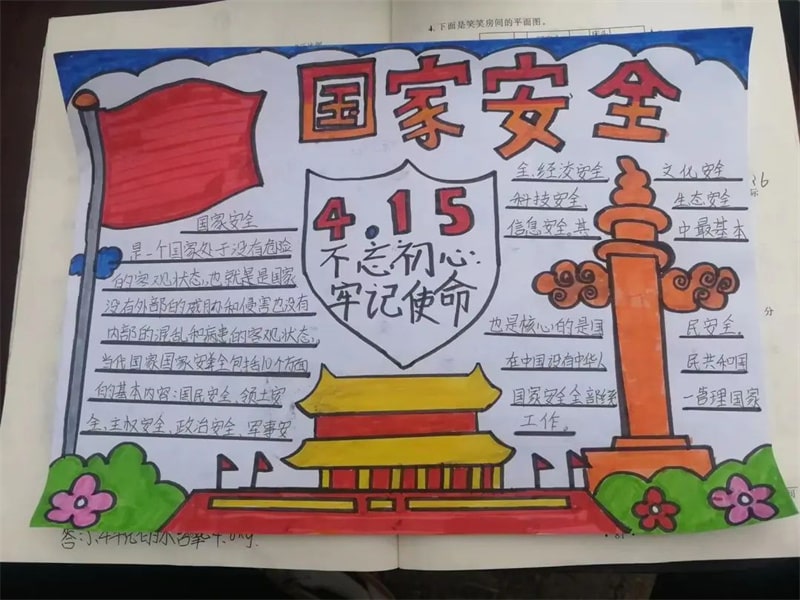 4.下面是笑笑房间的平面图。
国家安全
4.15
不忘初心
牢记使命
国家安全
是一个国家处于没有危险
的客观状态,也就是是国家
没有外部的威胁和侵害也没有
内部的混乱和病患的客观状态,
当代国家国家安全包括10个方面
的基本内容:国民安全、领土安
全、主权安全、政治安全、军事安
全、经济安全 文化安全
科技安全 生态安全
信息安全。其 中最基本
也是核心的是国 民安全。
在中国没有中华人 民共和国
国家安全全部 一管理国家
工作。